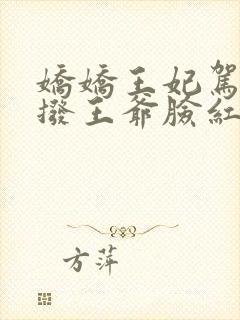 嬌嬌王妃駕
撥王爺臉紅
方萍